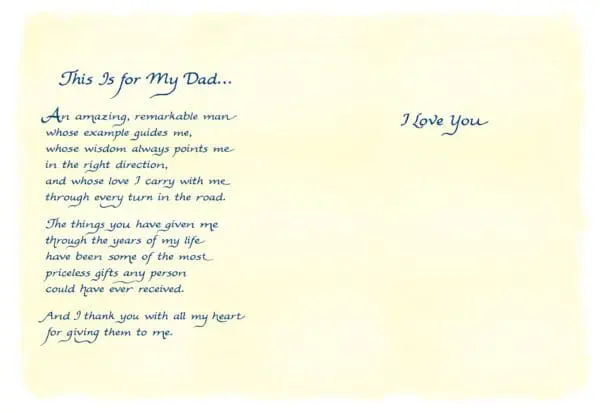 This Is for My Dad...
An amazing, remarkable man
whose example guides me,
whose wisdom always points me
in the right direction,
and whose love I carry with me
through every turn in the road.
The things you have given me
through the years of my life
have been some of the most
priceless gifts any person
could have ever received.
And I thank you with all my heart
for giving them to me.
I Love You